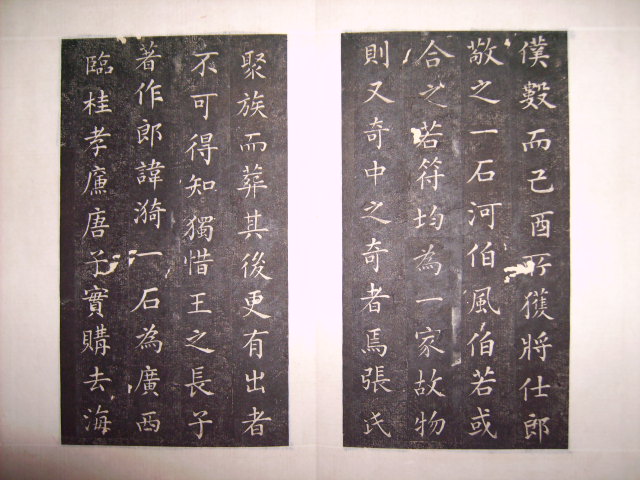 僕數而已酉所獲將仕郎
敬之一石河伯風伯若或
合之若符均為一家故物
則又奇中之奇者焉張氏
聚族而葬其後更有出者
不可得知獨惜王之長子
著作郎諱漪一石為廣西
臨桂孝廉唐子實購去海